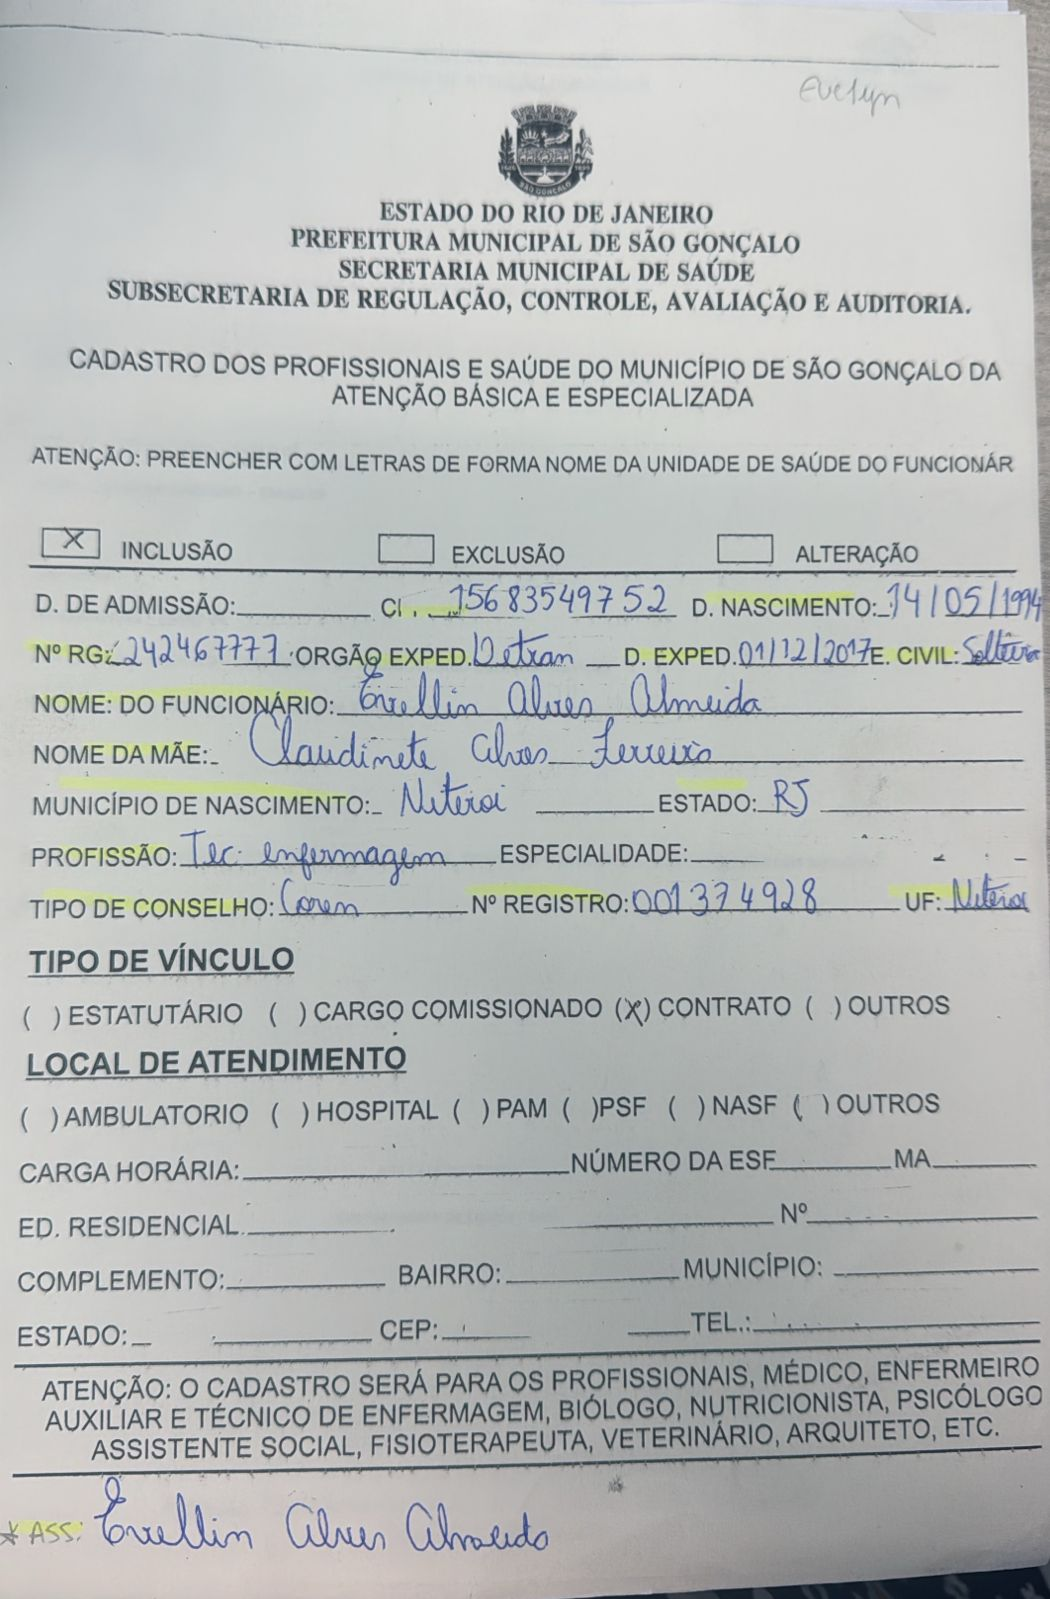 Evelyn
SÃO GONÇALO
ESTADO DO RIO DE JANEIRO
PREFEITURA MUNICIPAL DE SÃO GONÇALO
SECRETARIA MUNICIPAL DE SAÚDE
SUBSECRETARIA DE REGULAÇÃO, CONTROLE, AVALIAÇÃO E AUDITORIA.
CADASTRO DOS PROFISSIONAIS E SAÚDE DO MUNICÍPIO DE SÃO GONÇALO DA
ATENÇÃO BÁSICA E ESPECIALIZADA
ATENÇÃO: PREENCHER COM LETRAS DE FORMA NOME DA UNIDADE DE SAÚDE DO FUNCIONÁR
X INCLUSÃO EXCLUSÃO ALTERAÇÃO
D. DE ADMISSÃO: CI. 15683549752 D. NASCIMENTO: 14/05/1994
Nº RG: 242467777 ORGÃO EXPED. Detran D. EXPED. 01/12/2017 E. CIVIL: Solteira
NOME: DO FUNCIONÁRIO: Evellin Alves Almeida
NOME DA MÃE: Claudinete Alves Ferreira
MUNICÍPIO DE NASCIMENTO: Niteroi ESTADO: RJ
PROFISSÃO: Tec. enfermagem ESPECIALIDADE:
TIPO DE CONSELHO: Coren Nº REGISTRO: 001374928 UF: Niteroi
TIPO DE VÍNCULO
( ) ESTATUTÁRIO ( ) CARGO COMISSIONADO (X) CONTRATO ( ) OUTROS
LOCAL DE ATENDIMENTO
( ) AMBULATORIO ( ) HOSPITAL ( ) PAM ( )PSF ( ) NASF ( ) OUTROS
CARGA HORÁRIA: NÚMERO DA ESF MA
ED. RESIDENCIAL Nº
COMPLEMENTO: BAIRRO: MUNICÍPIO:
ESTADO: CEP: TEL.:
ATENÇÃO: O CADASTRO SERÁ PARA OS PROFISSIONAIS, MÉDICO, ENFERMEIRO
AUXILIAR E TÉCNICO DE ENFERMAGEM, BIÓLOGO, NUTRICIONISTA, PSICÓLOGO
ASSISTENTE SOCIAL, FISIOTERAPEUTA, VETERINÁRIO, ARQUITETO, ETC.
* ASS: Evellin Alves Almeida